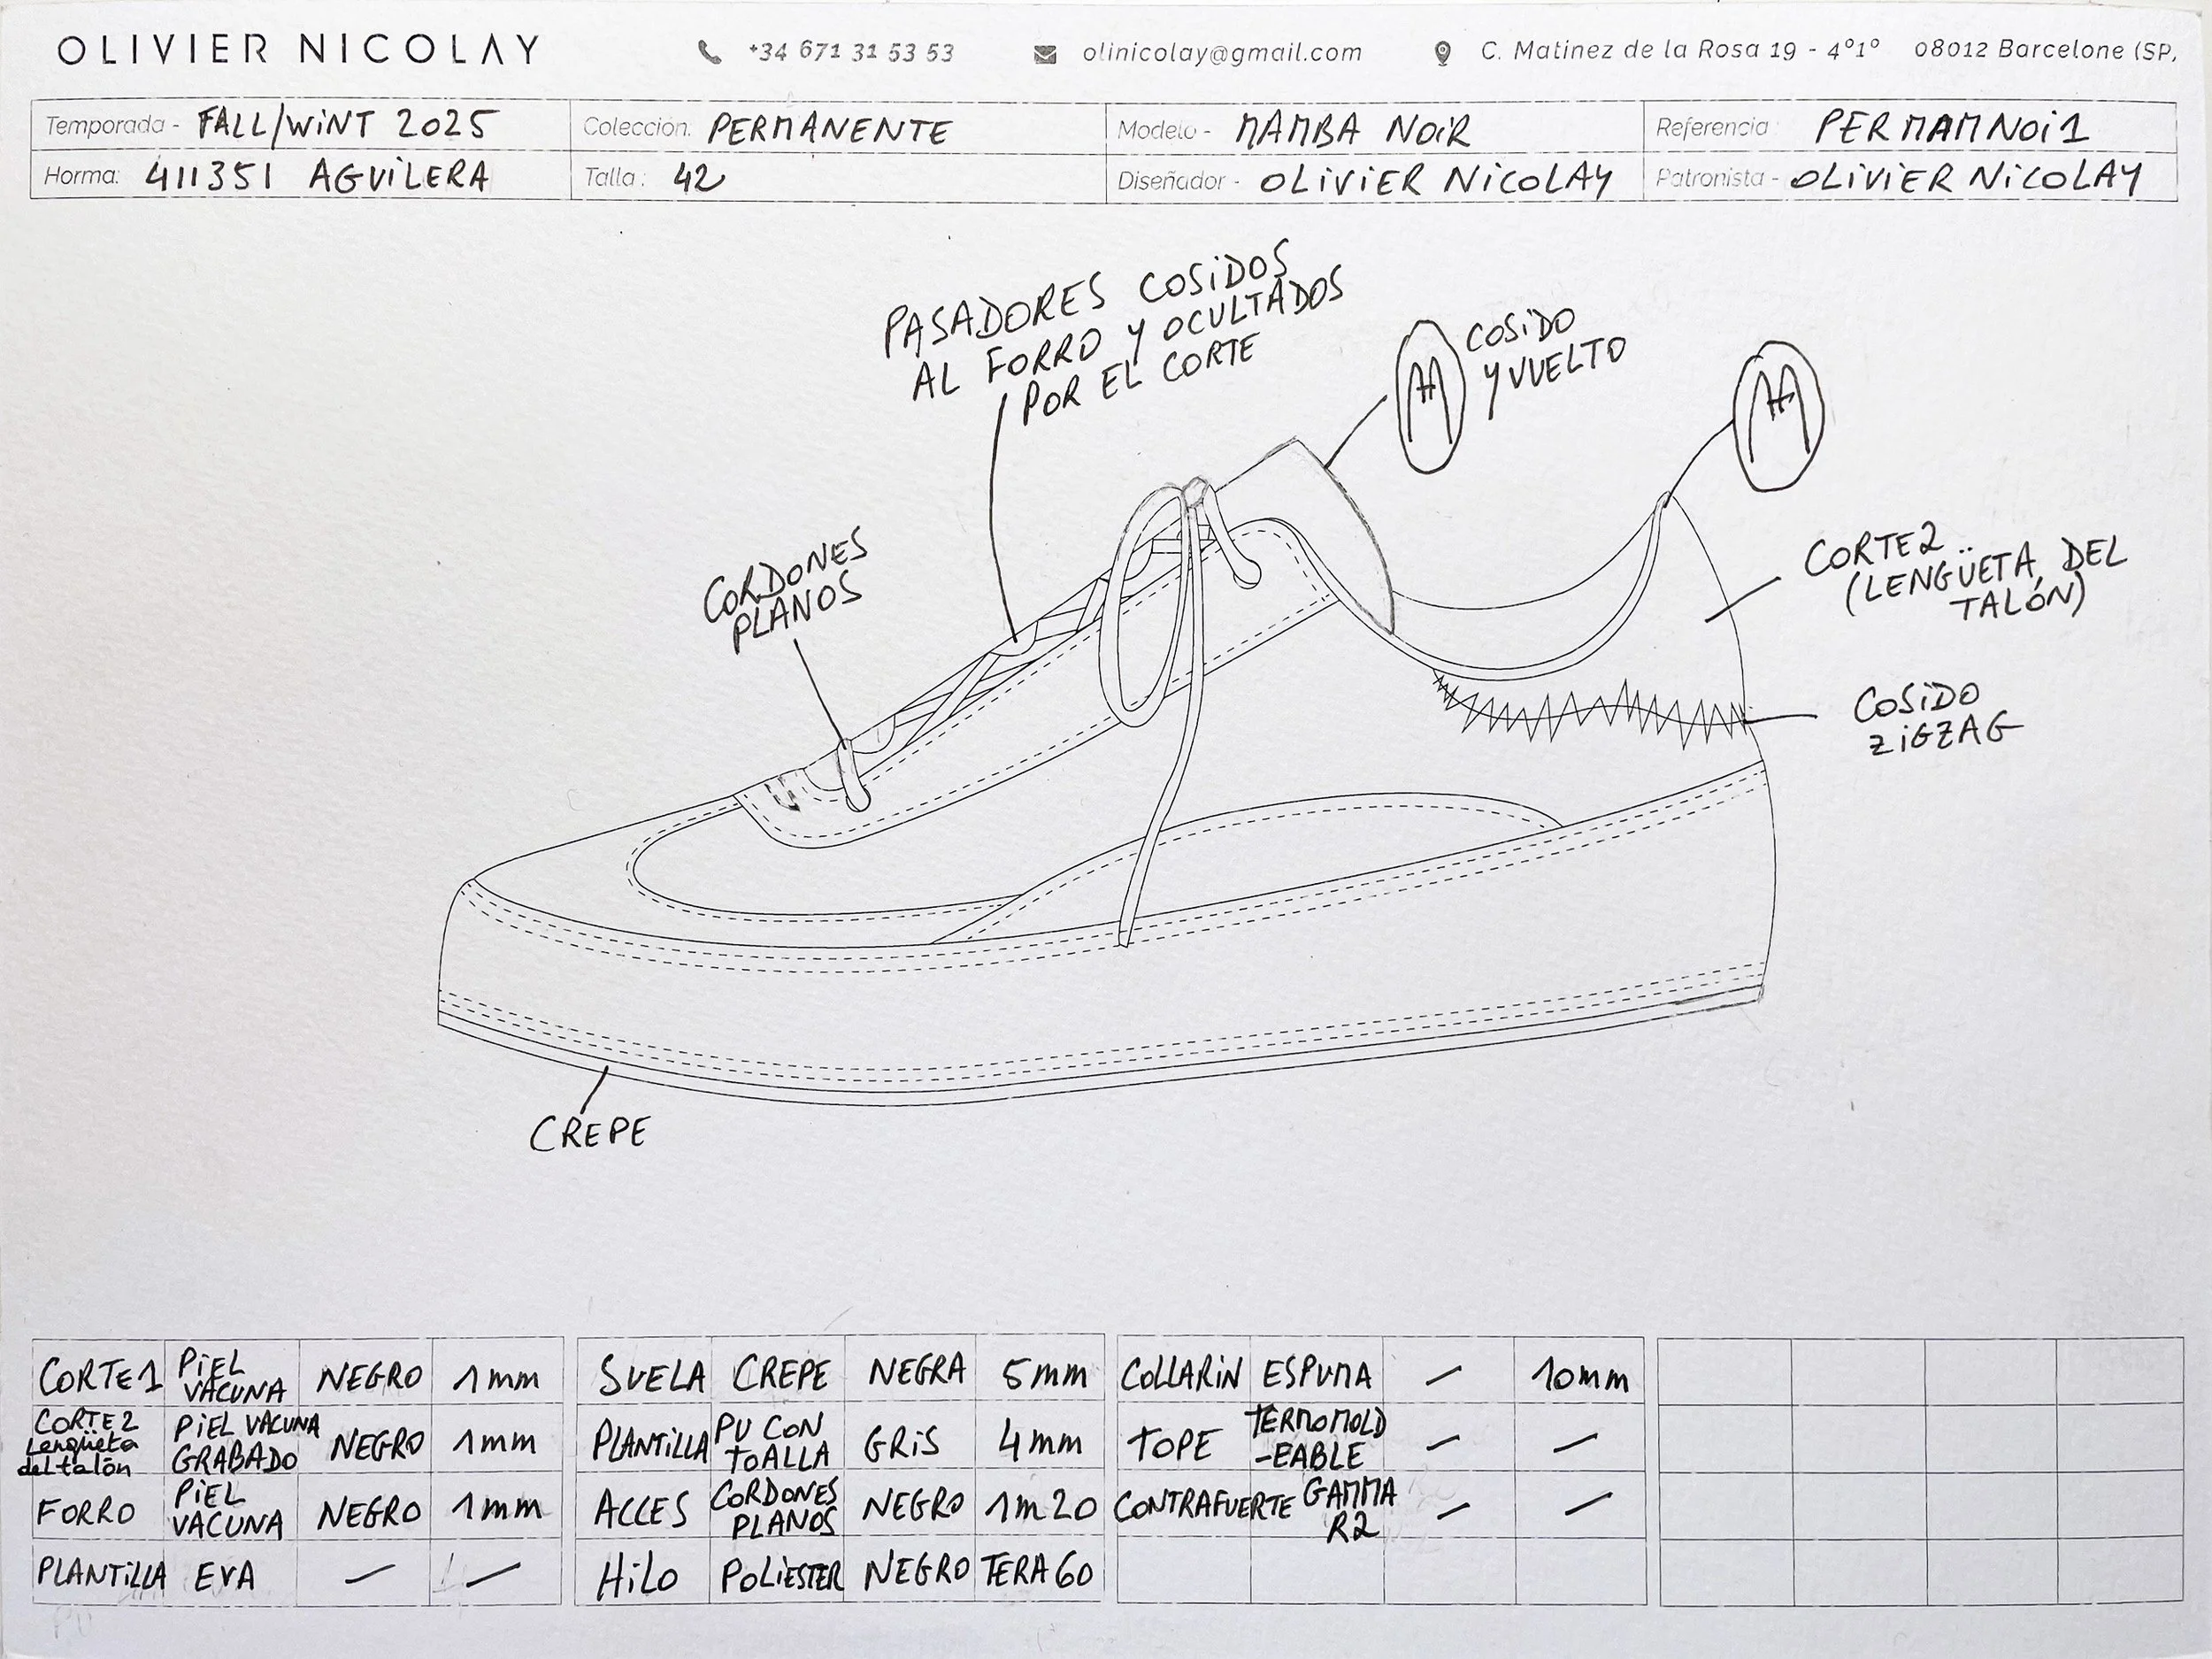 OLIVIER NICOLAY
+34 671 31 53 53
olinicolay@gmail.com
C. Matinez de la Rosa 19 - 4º1º 08012 Barcelone (SP,
Temporada - FALL/WiNT 2025
Colección: PERMANENTE
Modelo - MAMBA NOiR
Referencia: PERMAMNOi1
Horma: 411351 AGUiLERA
Talla: 42
Diseñador - OLiViER NiCOLAY
Patronista - OLiViER NiCOLAY
PASADORES COSiDOS
AL FORRO Y OCULTADOS
POR EL CORTE
COSiDO
Y VUELTO
CORDONES
PLANOS
CORTE2
(LENGÜETA DEL
TALÓN)
COSiDO
ZiGZAG
CREPE
CORTE1 PiEL VACUNA NEGRO 1mm
CORTE2 Lengüeta del talón PiEL VACUNA GRABADO NEGRO 1mm
FORRO PiEL VACUNA NEGRO 1mm
PLANTiLLA EVA – –
SUELA CREPE NEGRA 5mm
PLANTiLLA PU CON TOALLA GRiS 4mm
ACCES CORDONES PLANOS NEGRO 1m20
HiLO POLiESTER NEGRO TERA 60
COLLARiN ESPUMA – 10mm
TOPE TERMOMOLD -EABLE – –
CONTRAFUERTE GAMMA R2 – –